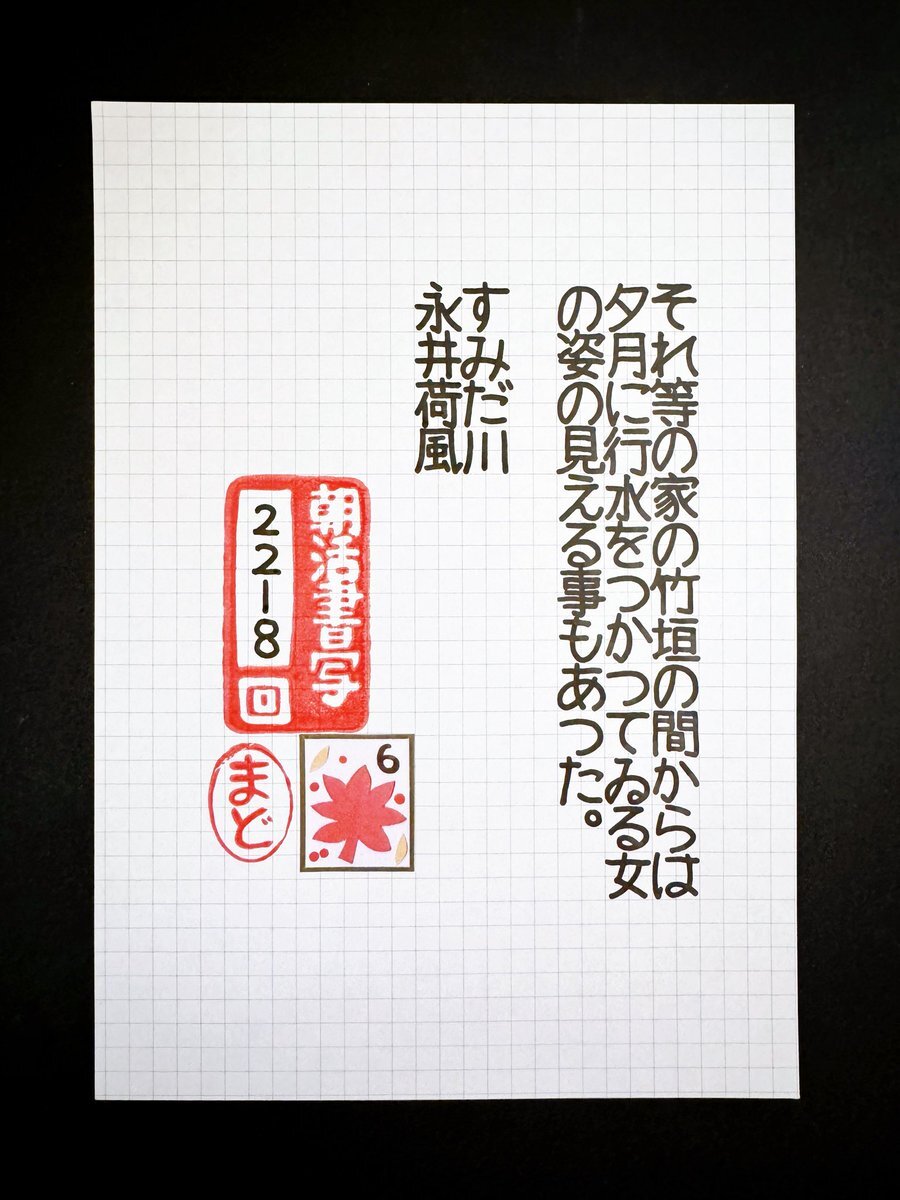 それ等の家の竹垣の間からは
夕月に行水をつかつてゐる女
の姿の見える事もあつた。
すみだ川
永井荷風
朝活書写
22-8
回
6
まど